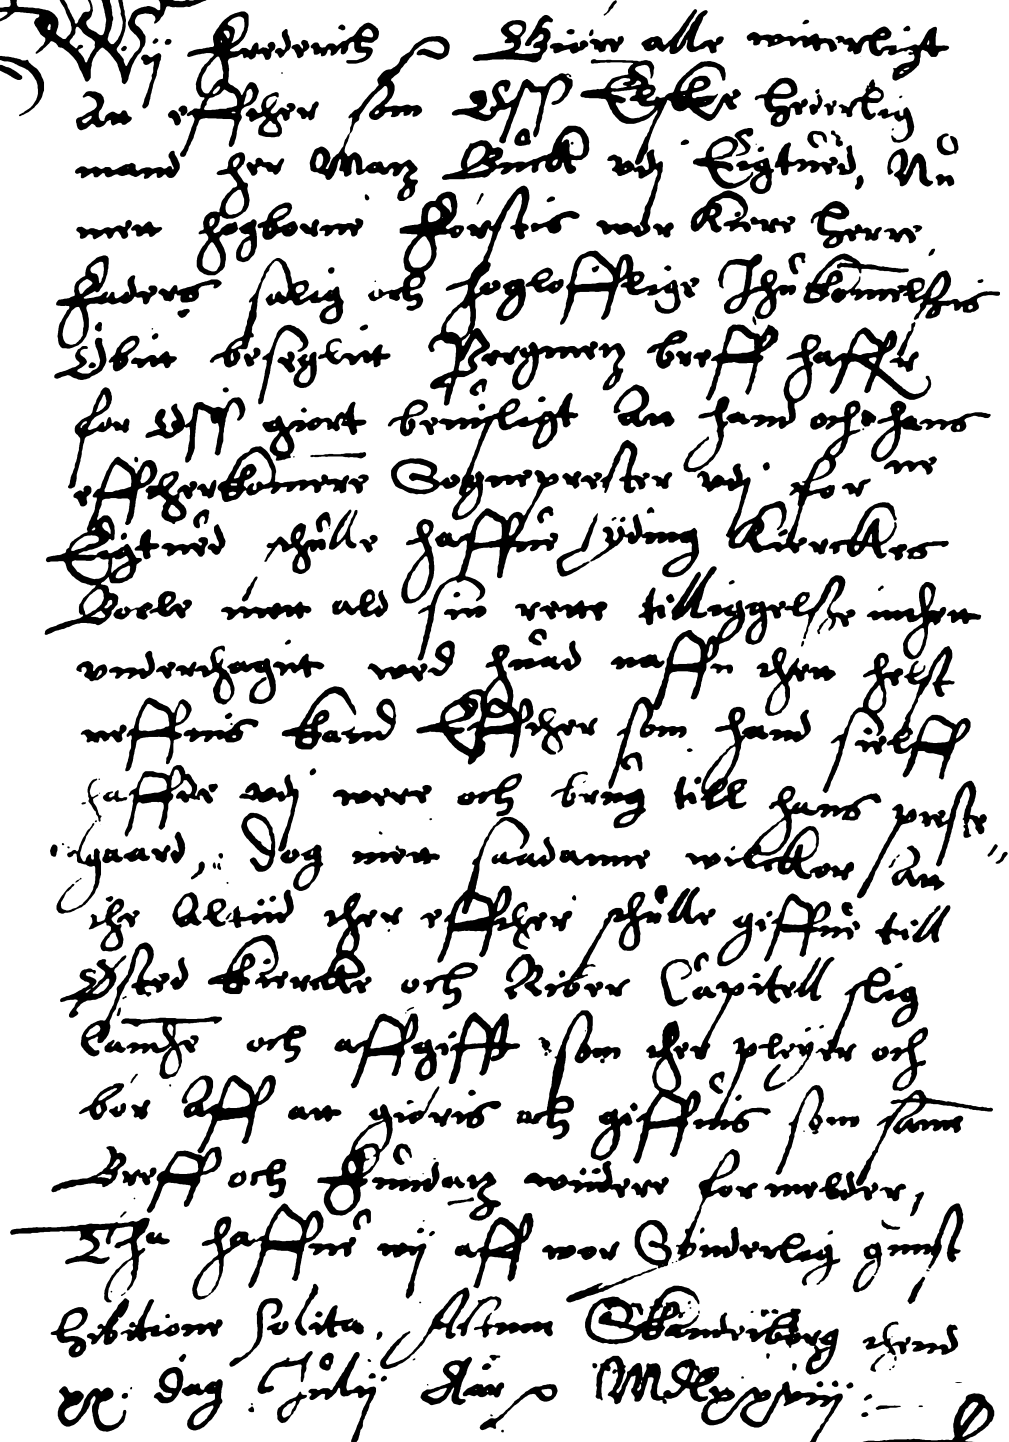 Wij Frederich Giøre alle witterligt
An effther som Oss Elskelig hederlig
mand her Matz Buck vdj Eigtued, Nu
mett høgborne Førstis wor kiere herre
Faders salig och høglofflige Ihukommelsis
Obne beseglett Pergmentz breff haffr
for Oss giort beuisligt An hand och hans
efftherkommere Sogneprester vdj for ne
Eigtued schulle haffue Lyding Kierckes
Boele mett ald sin rette tilliggelsse inthett
vndertagnt wed huad naffn thet helst
neffnis kand Effther som hand sielff
haffde vdj were och brug till hans preste
gaard, Dog mett saadanne wilckor An
the Altiid ther effther schulle giffue till
Østed kiercke och Riber Capitell slig
landze och affgifft som ther pleyer och
bør Aff att giøris och giffuis som samme
Breff och Fundatz wiidere formelder,
Tha haffue wij aff wor Sønderlig gunst
hibitione solita, Actum Skanderborg thend
xx. dag Julij Aar MDlxxviij